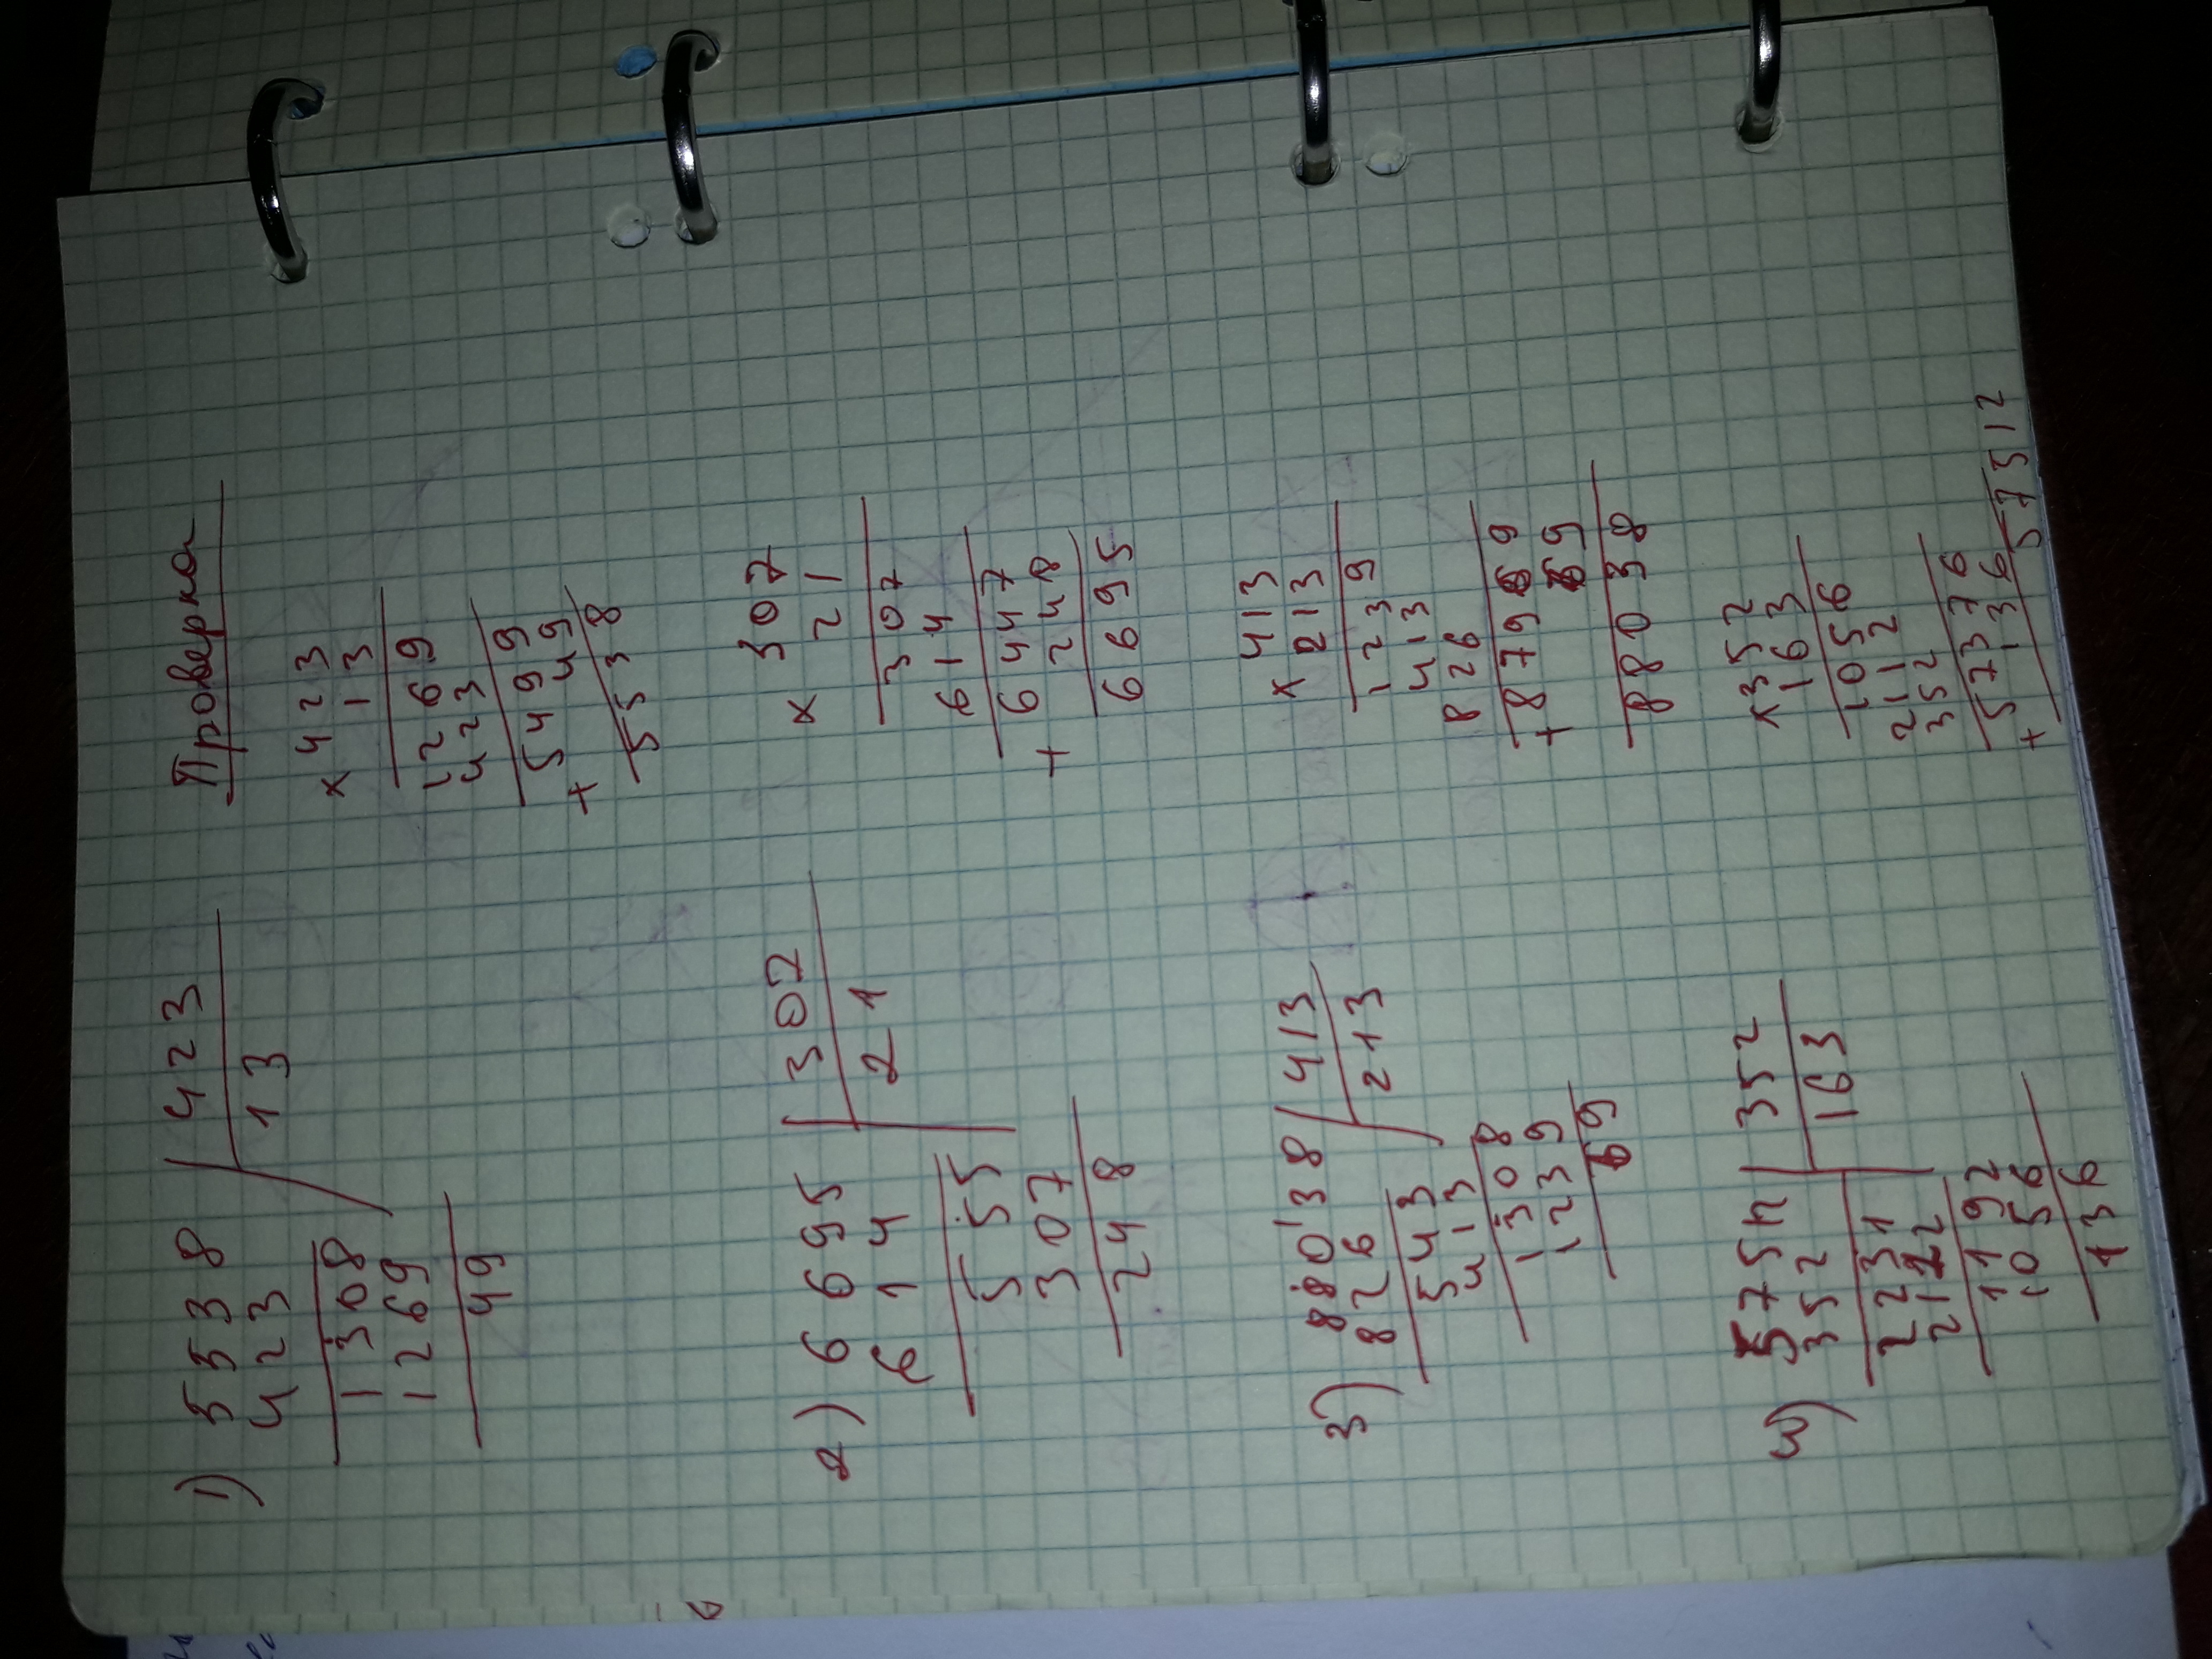 Проверка
1) 5538 | 423
423 13
1308
1269
49
× 423
13
1269
423
5499
+ 49
5538
2) 6695 | 307
614 21
555
307
248
× 307
21
307
614
6447
+ 248
6695
3) 88038 | 413
826 213
543
413
1308
1239
69
× 413
213
1239
413
826
87969
+ 69
88038
4) 57512 | 352
352 163
2231
2112
1192
1056
136
× 352
163
1056
2112
352
57376
+ 136
57512